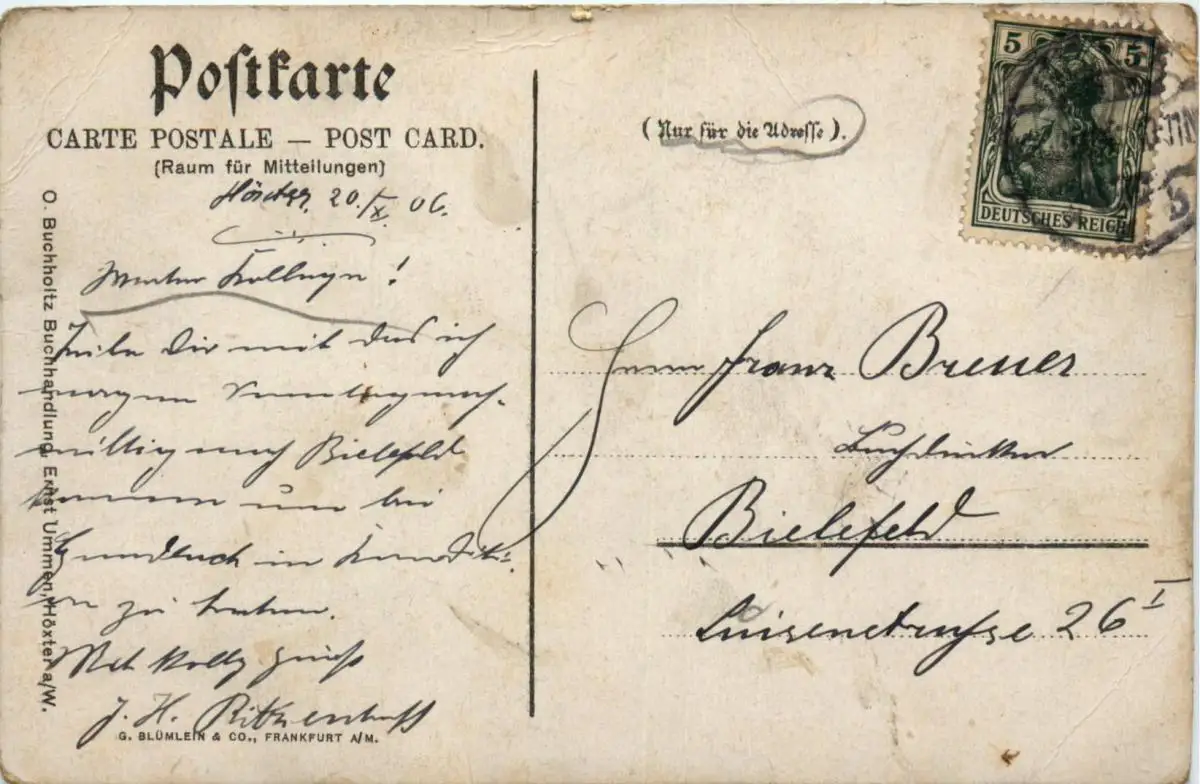 Postkarte
CARTE POSTALE — POST CARD.
(Raum für Mitteilungen)
Höxter, 20./X. 06.
Werter Kollege!
Teile Dir mit das ich
morgen Sonntagnach-
mittag nach Bielefeld
komme um bei
Gundlach in Kondit-
on zu treten.
Mit Kolly gruß
J. H.
O. Buchholtz Buchhandlung, Ernst Ummen, Höxter a/W.
G. BLÜMLEIN & CO., FRANKFURT A/M.
(Nur für die Adresse).
5 5
DEUTSCHES REICH
Herrn Franz Breuer
Buchdrucker
Bielefeld
Luisenstraße 26 I